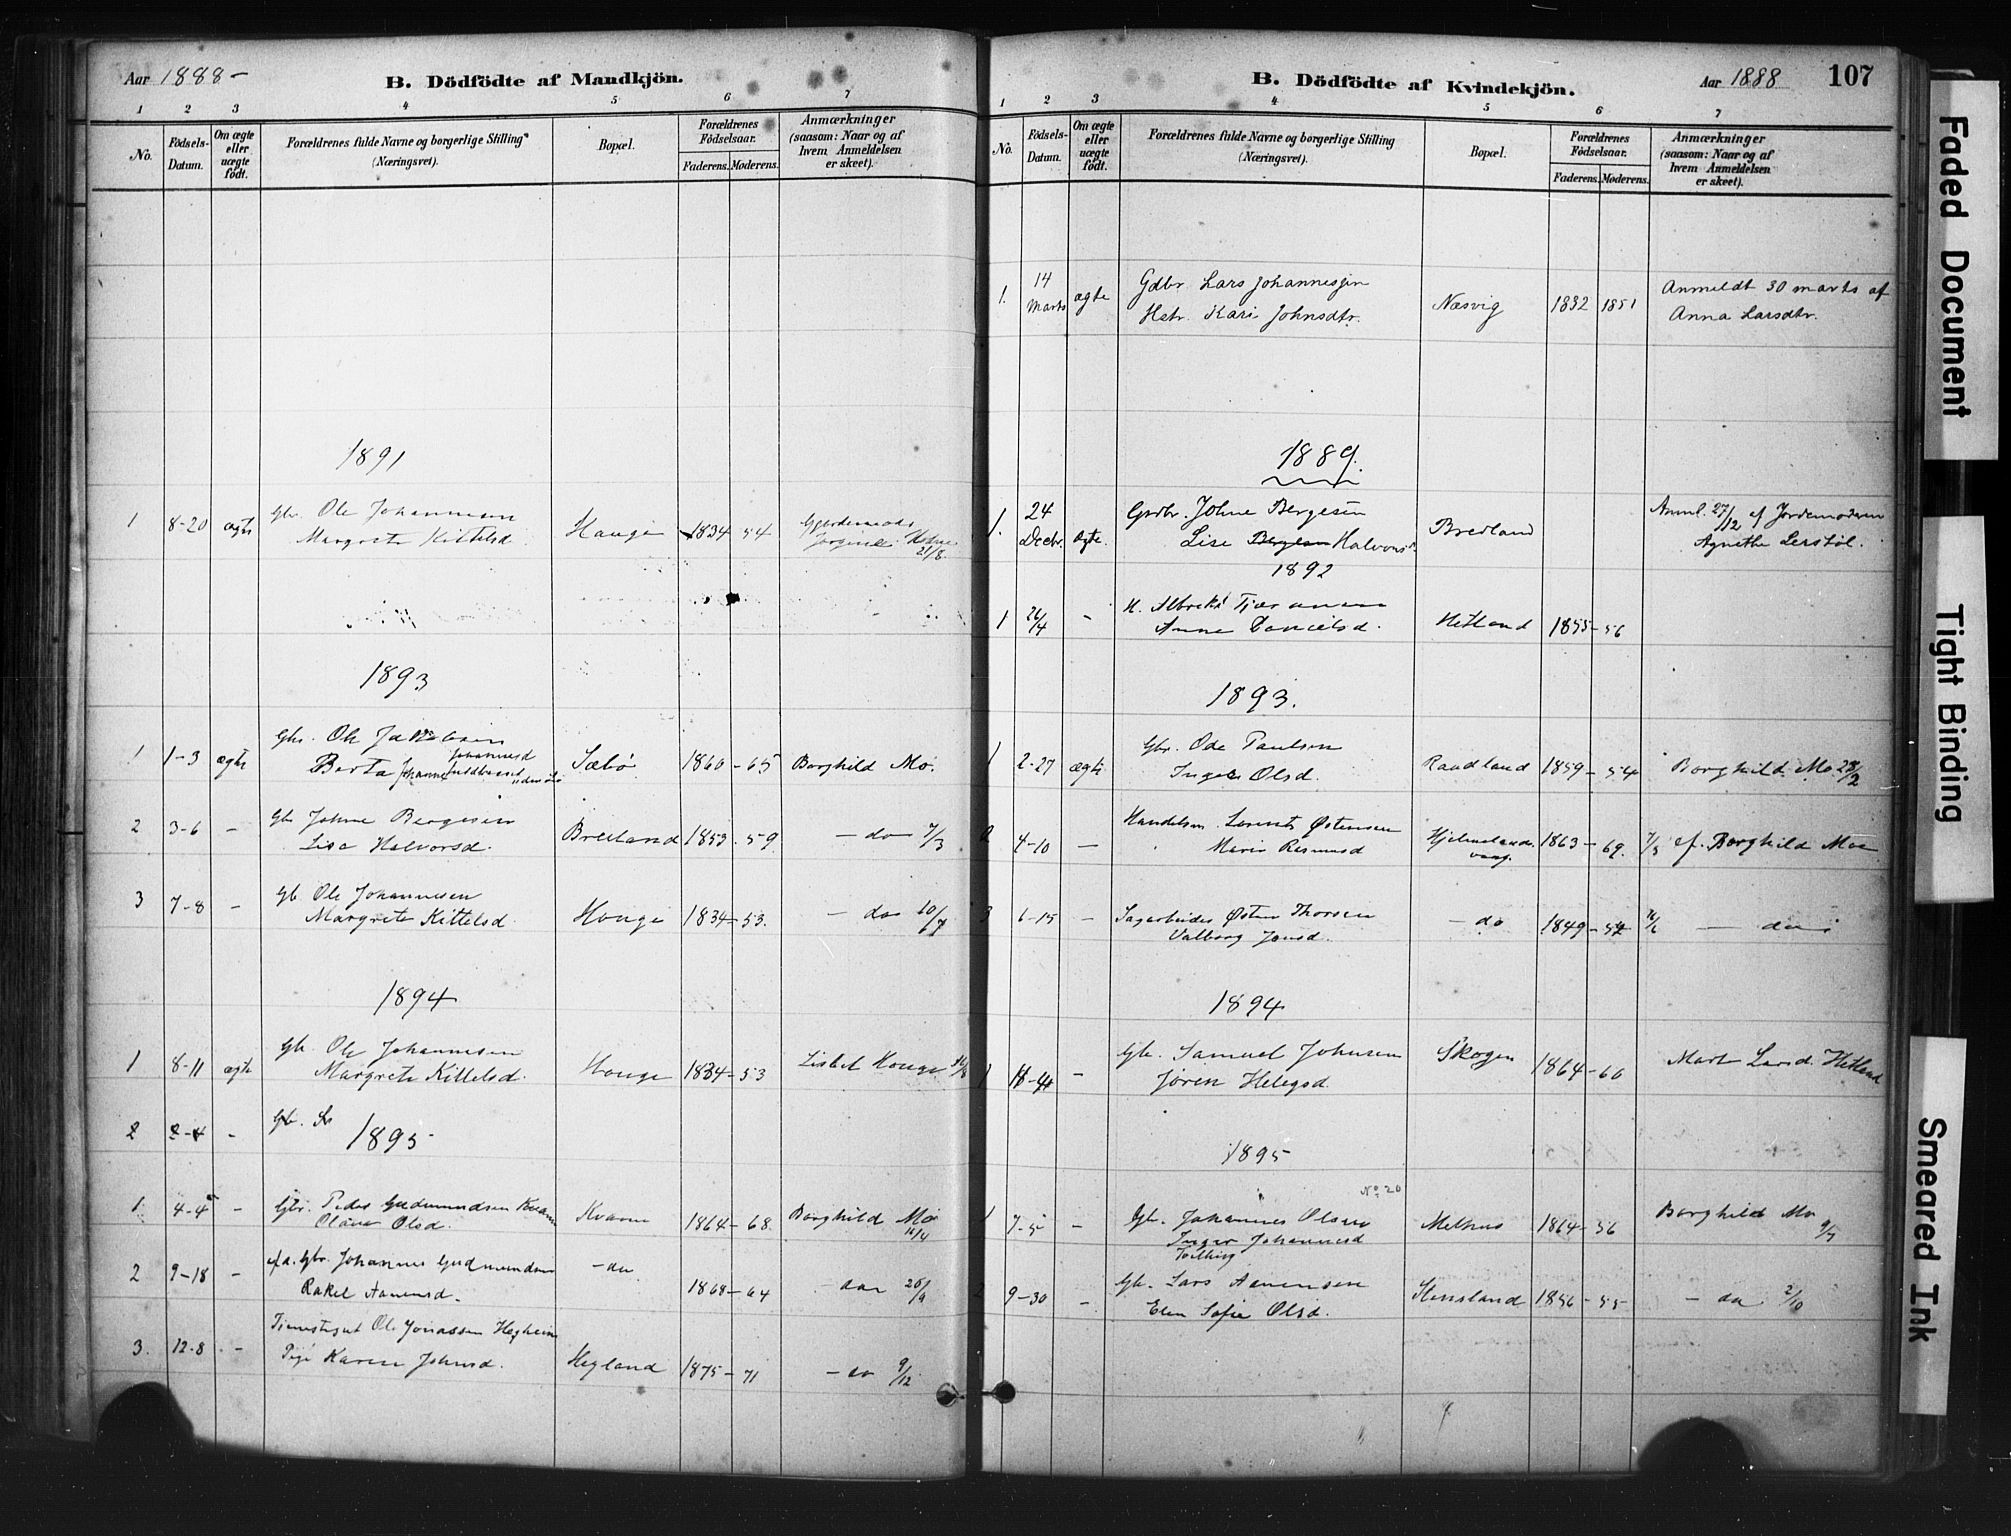 Aar 1888-
B. Dödfödte af Mandkjön.
1 2 3 4 5 6 7
No.
Födsels-Datum.
Om ægte eller uægte födt.
Forældrenes fulde Navne og borgerlige Stilling (Næringsvei).
Bopæl.
Forældrenes Födselsaar.
Faderens. Moderens.
Anmærkninger (saasom: Naar og af hvem Anmeldelsen er skeet).
1891
1 8-20 ægte Gbr. Ole Johannesen Hauge 1834 54
Margrete Kittelsd. 21/8
1893
1 1-3 ægte Gbr. Ole Jakobsen Sæbø 1860-65 Borghild Mo.
Berta Johanne Johannesd
2 3-6 - Gbr Johne Bergesen Breiland 1853-59 - do 7/3
Lise Halvorsd.
3 7-8 - Gb Ole Johannesen Houge 1834-53. - do 10/7
Margrete Kittelsd.
1894
1 8-11 ægte Gb. Ole Johannesen Houge 1834-53 Lisbet Houge
Margrete Kittelsd.
2 2-4 - Gb.
1895
1 4-4 - Gbr. Peder Gudmundsen Kvame Kvame 1864-68. Borghild Mo
Olava Olsd.
2 9-18 - Gbr. Johannes Gudmundsen - do 1868-64 - do 20/9
Rakel Aanensd.
3. 12-8 - Tjenestegut Ole Jonassen Hegheim
Pige Karen Johnsd. Hegland 1875-71 - do 9/12
Aar 1888 107
B. Dödfödte af Kvindekjön.
1 2 3 4 5 6 7
No.
Födsels-Datum.
Om ægte eller uægte födt.
Forældrenes fulde Navne og borgerlige Stilling (Næringsvei).
Bopæl.
Forældrenes Födselsaar.
Faderens. Moderens.
Anmærkninger (saasom: Naar og af hvem Anmeldelsen er skeet).
1. 14 Marts ægte Gdbr. Lars Johannesjen Næsvig 1832 1851 Anmeldt 30 marts af
Hstr. Kari Johnsdtr. Anna Larsdtr.
1889.
1. 24 Decbr. ægte. Grdbr. Johne Bergesen Bredland Anml. 27/12 af Jordemoderen
Lise Bergesen Halvorsd. Agnethe Lerstøl.
1892
1 26/4 - Albrekt Hetland 1855-56
Anne Danielsd.
1893.
1 2-27 ægte Gbr. Ode Paulsen Raudland 1859-54 Borghild Mo 28/2
Inger Olsd.
2 4-10 - Handelsm. Lorents Østensen Hjelmelandsvaag. 1863-69. af Borghild Moe
Marie Rasmusd
3 6-15 - Sagarbeider Østen Thorsen - do 1849-54 - do
Valborg Jonsd.
1894
1 - Gb. Samuel Johnsen Skogen 1864-60 Mart Larsd. Hetland
Jøren Helegsd.
1895
No. 20
1 7-5 - Gb. Johannes Olsen Melhus 1864-56 Borghild Mo 9/7
Inger Johannesd
2 9-30 - Gb. Lars Aanensen Hensland 1856-55 - do 2/10
Elen Sofie Olsd.
Faded Document
Tight Binding
Smeared Ink